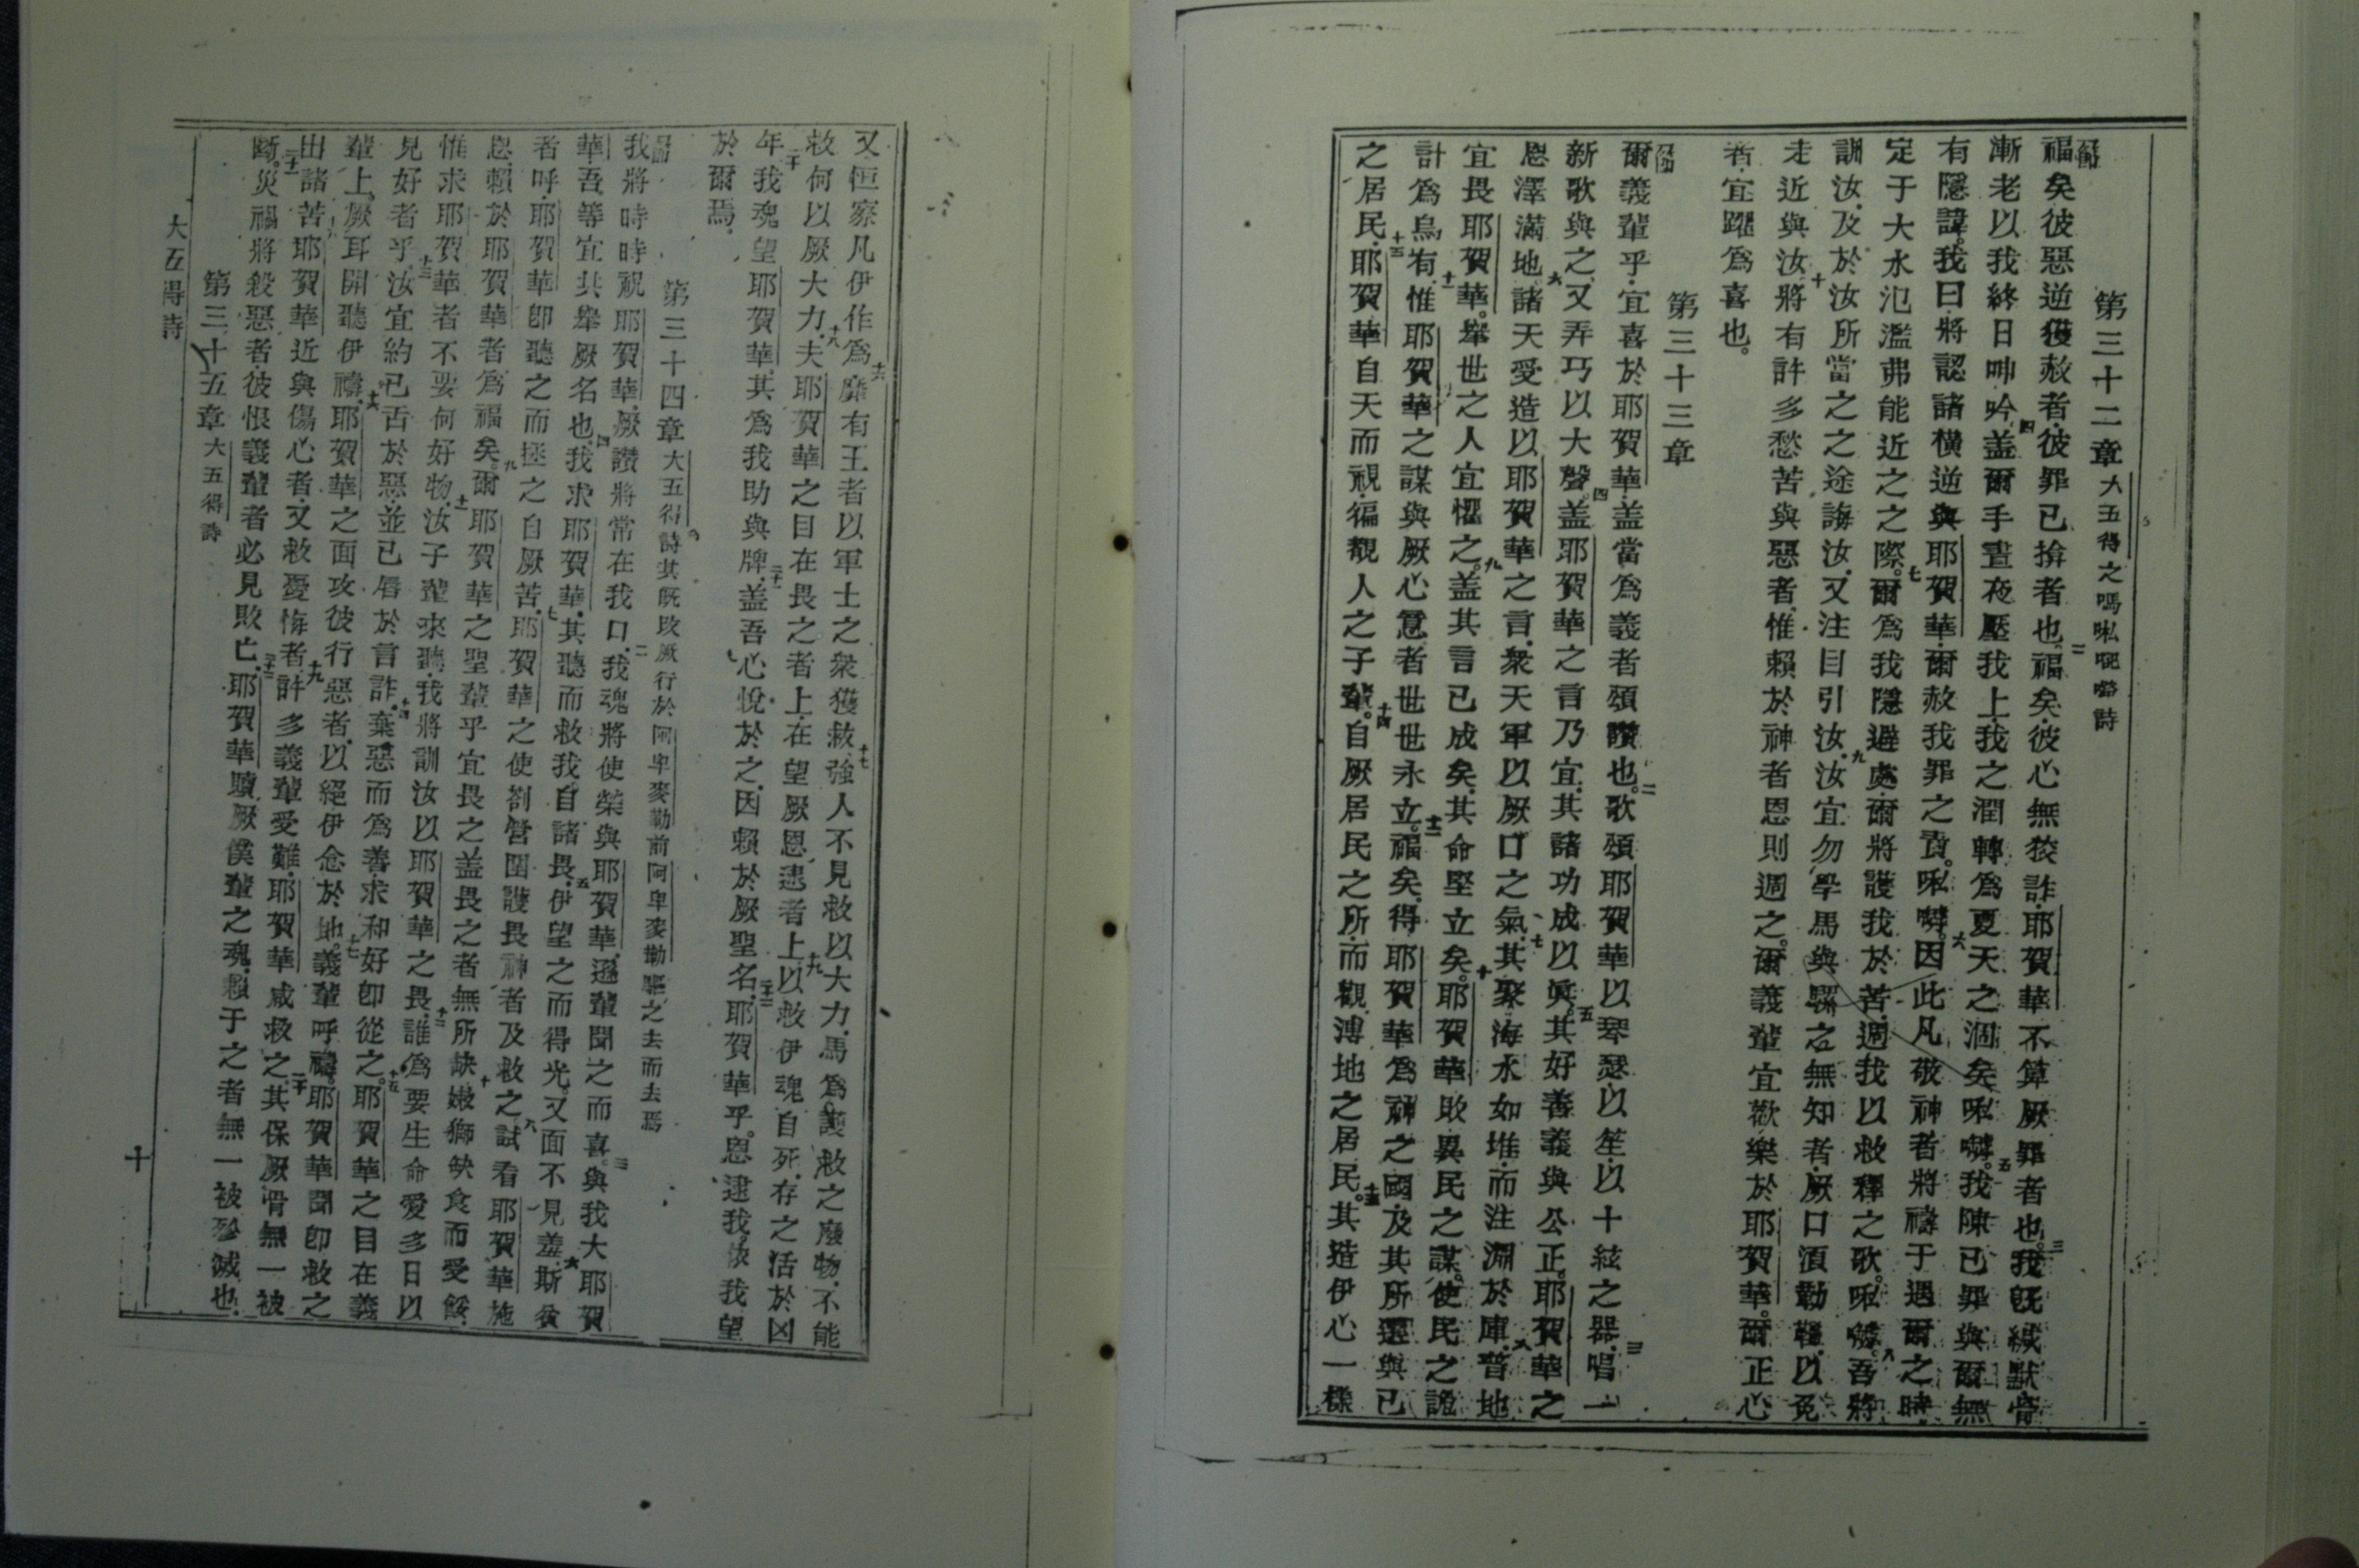 第三十二章 大五得之嗎𠳐呢詩
福矣彼惡逆獲赦者彼罪已揜者也。二福矣彼心無狡詐耶賀華不算厥罪者也。三我旣緘默
漸老以我終日呻吟四盖爾手晝夜壓我上我之潤轉爲夏天之涸矣𠳐㗲。五我陳已罪與爾無
有隱諱。我曰將認諸橫逆與耶賀華爾赦我罪之責。𠳐㗲。六因此凡敬神者將禱于遇爾之時
定于大水氾濫弗能近之之際。七爾爲我隱避處爾將護我於苦週我以救釋之歌。𠳐㗲。八吾將
訓汝及於汝所當之之途誨汝又注目引汝。九汝宜勿學馬與騾之無知者厥口須勒韁以免
走近與汝。十將有許多愁苦與惡者惟賴於神者恩則週之。爾義輩宜歡樂於耶賀華。爾正心
者宜躍爲喜也。
第三十三章
爾義輩乎宜喜於耶賀華盖當爲義者頌讚也。二歌頌耶賀華以琴瑟以笙以十絃之器三唱一
新歌與之又弄巧以大聲。四盖耶賀華之言乃宜其諸功成以眞。五其好善義與公正。耶賀華之
恩澤滿地六諸天受造以耶賀華之言衆天軍以厥口之氣七其聚海水如堆而注淵於庫八普地
宜畏耶賀華。舉世之人宜懼之。九盖其言已成矣其命堅立矣。十耶賀華敗異民之謀。使民之詭
計爲烏有。十一惟耶賀華之謀與厥心意者世世永立。十二福矣得耶賀華爲神之國及其所選與已
之居民。十三耶賀華自天而視徧覩人之子輩。十四自厥居民之所而觀溥地之居民。十五其造伊心一樣
又恒察凡伊作爲十六靡有王者以軍士之衆獲救強人不見救以大力十七馬爲護救之廢物不能
救何以厥大力十八夫耶賀華之目在畏之者上在望厥恩逮者上十九以救伊魂自死存之活於凶
年二十我魂望耶賀華其爲我助與牌二十一盖吾心悅於之因賴於厥聖名二十二耶賀華乎。恩逮我依我望
於爾焉
第三十四章 大五得詩其旣改厥行於阿卑麥勒前阿卑麥勒驅之去而去焉
我將時時祝耶賀華厥讚將常在我口二我魂將使榮與耶賀華遜輩聞之而喜。三與我大耶賀
華吾等宜共舉厥名也四我求耶賀華其聽而救我自諸畏五伊望之而得光。又面不見羞六斯貧
者呼耶賀華卽聽之而拯之自厥苦七耶賀華之使劄營圍護畏神者及救之八試看耶賀華施
恩賴於耶賀華者爲福矣。九爾耶賀華之聖輩乎宜畏之盖畏之者無所缺十嫩獅缺食而受餒
惟求耶賀華者不要何好物十一汝子輩來聽我將訓汝以耶賀華之畏十二誰爲要生命愛多日以
見好者乎十三汝宜約已舌於惡並已脣於言詐十四棄惡而爲善求和好卽從之。十五耶賀華之目在義
輩上厥耳開聽伊禱十六耶賀華之面攻彼行惡者以絕伊念於地十七義輩呼禱。耶賀華聞卽救之
出諸苦十八耶賀華近與傷心者又救憂悔者十九許多義輩受難耶賀華咸救之二十其保厥骨無一被
斷。二十一災禍將殺惡者彼恨義輩者必見敗亡二十二耶賀華贖厥僕輩之魂賴于之者無一被殄滅也
第三十五章 大五得詩
大五得詩
十